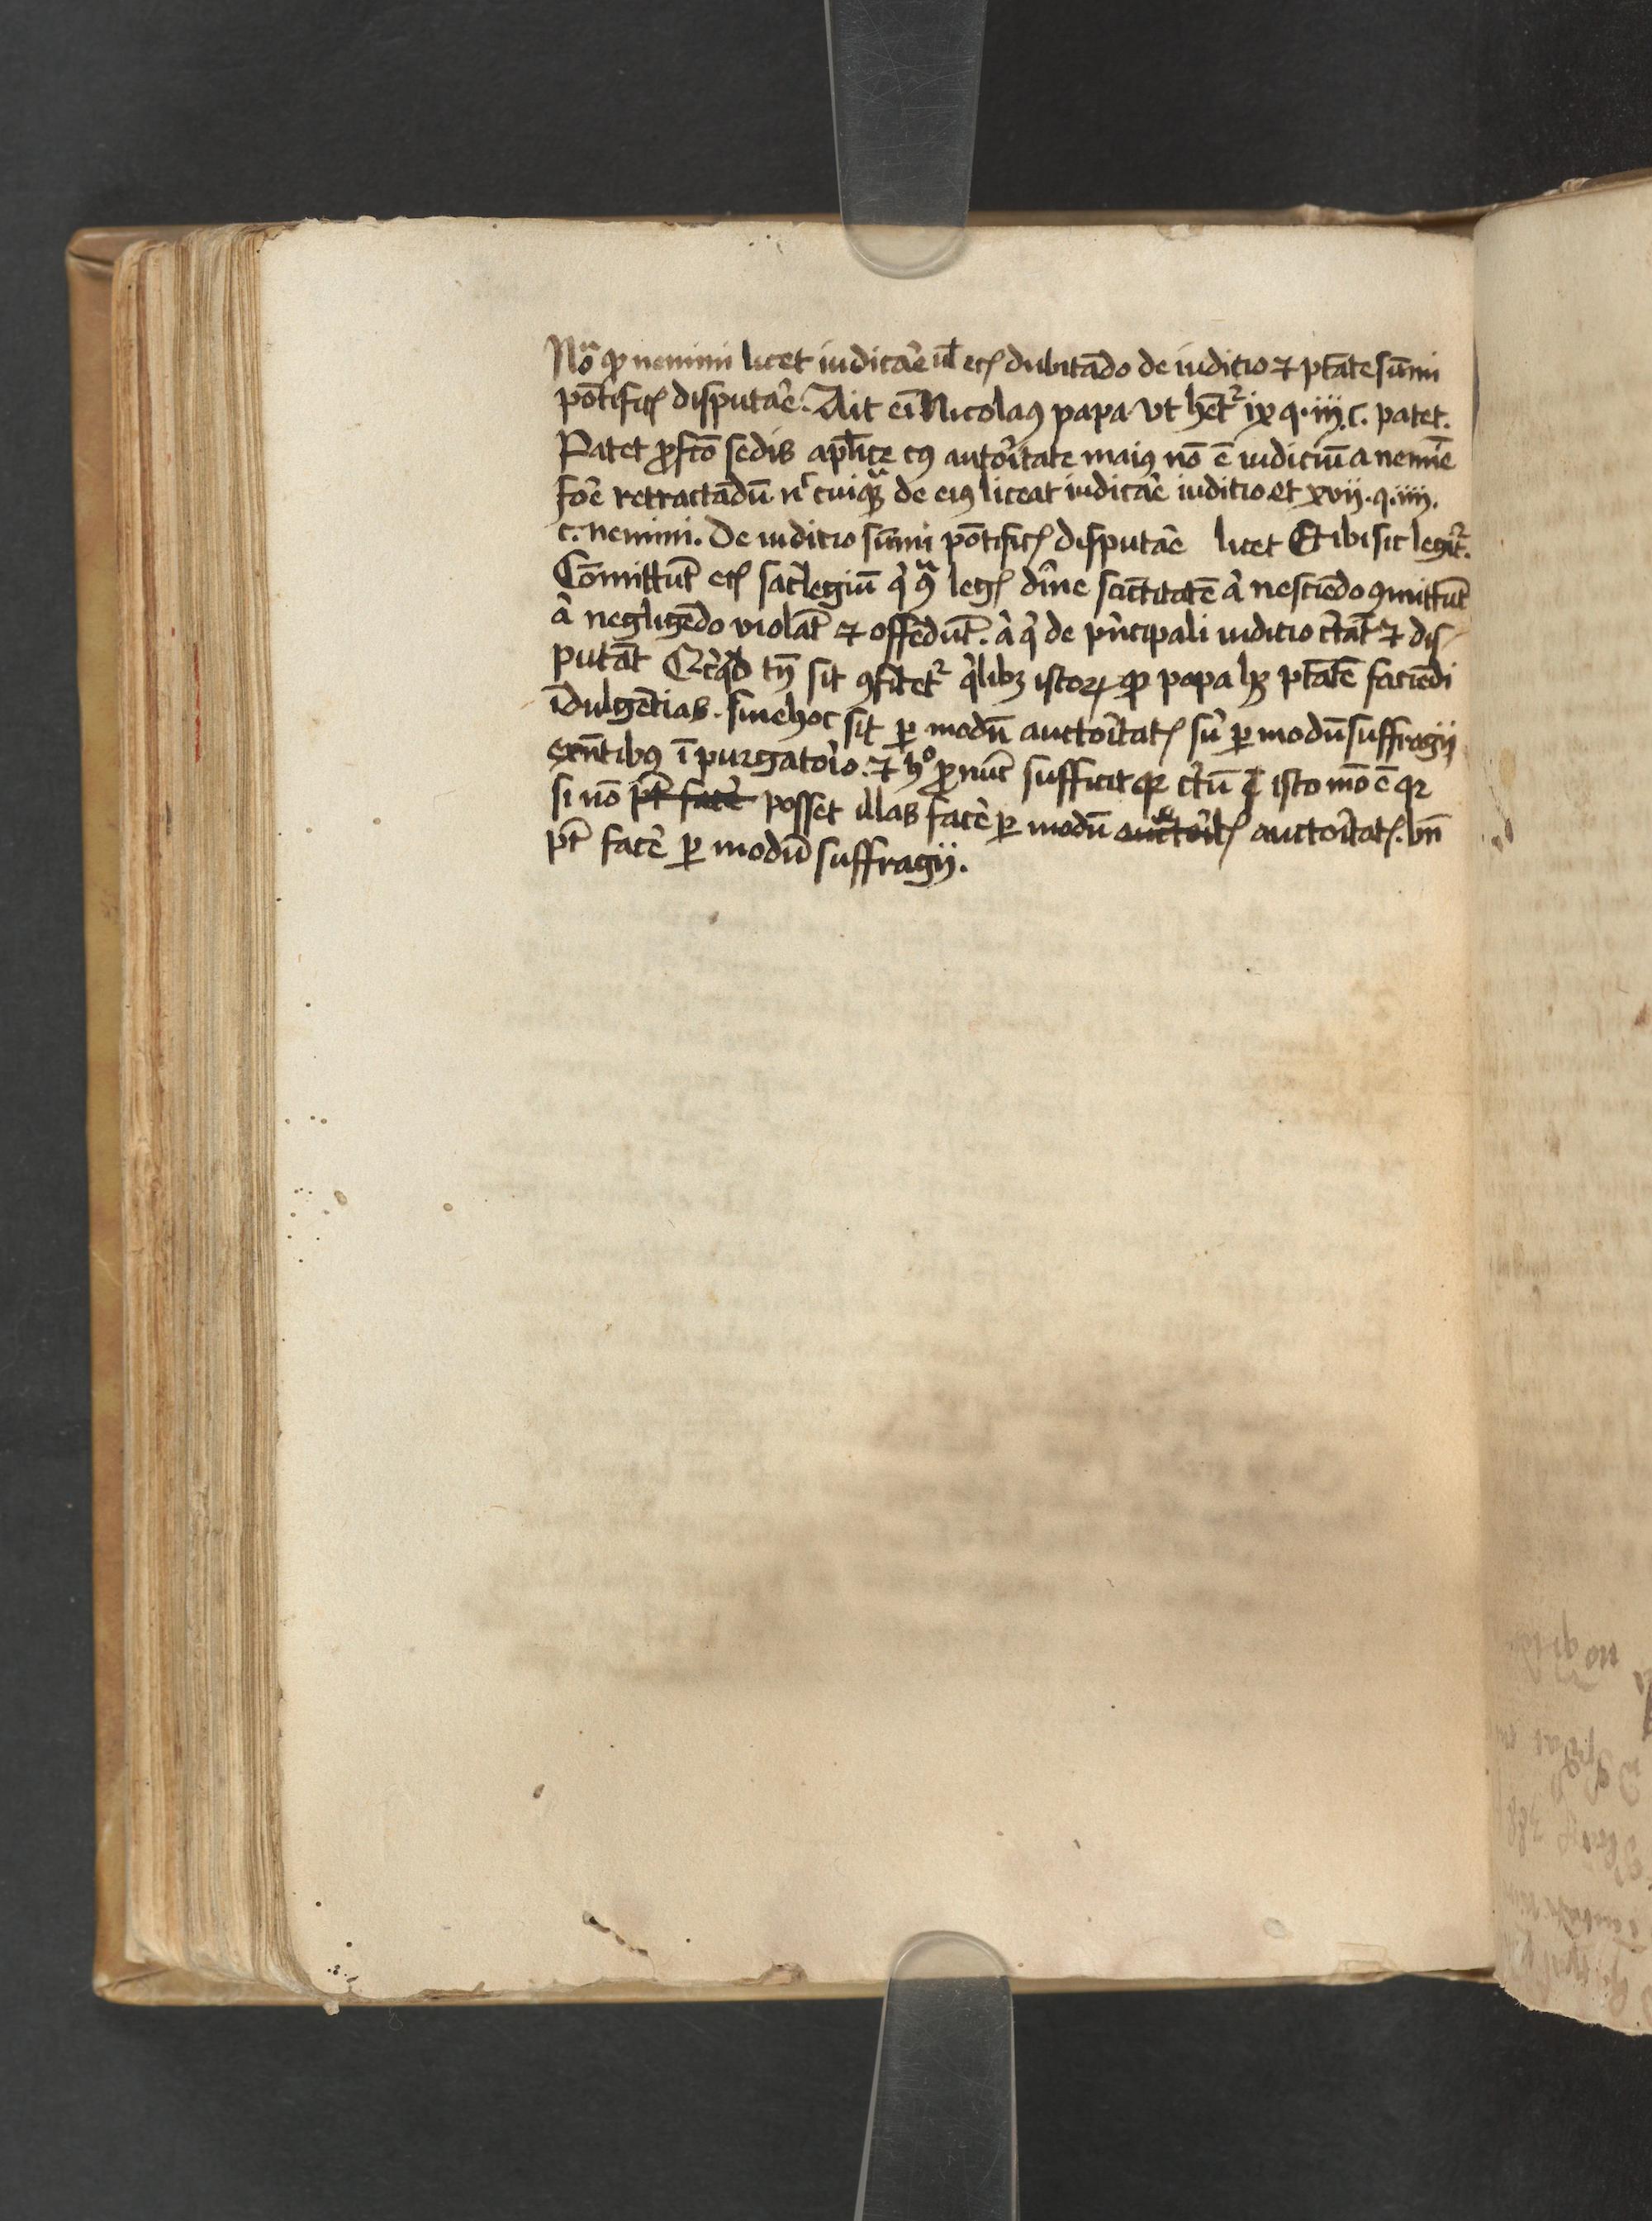 Noͣ ꝙ nemini licet iudicar̄e ul̄ etꝭ dubitādo de iuditio ⁊ ptātē sūmi
pōtificꝭ disputar̄e. Ait em̄ Nicolaꝰ papa vt hēt᷑ ix q. iij. c. patet.
Patet ꝓfcō sedis apl̄ice cꝰ autoritate maiꝰ nō ē iudiciū a nemīe
for̄e retractādū nͨ cuiqͣꝫ de eiꝰ liceat iudicar̄e iuditio. et xvij. q. iiij.
c. nemini. De iuditio sūmi pōtificꝭ disputar̄e licet Et ibi sic legit᷑.
Cōmittūt etꝭ sacͥlegiū qͥ ꝯͣ legꝭ diͥne sāctitatē aͭ nesciēdo ꝯmittūt
aͭ negligēdo violāt ⁊ offēdūt. aͭ qͥ de pͥncipali iuditio c̄tāt ⁊ dis-
putāt Qͥcqͥd tn̄ sit ꝯfitet᷑ qͥlibꝫ istoꝝ ꝙ papa hꝫ ptātē faciēdi
īdulgētias. siue hoc sit ꝑ modū auctoritatꝭ siͧ ꝑ modū suffragij
exn̄tibꝰ ī purgatorio. ⁊ hͦ ꝓ nūc sufficit qꝛ c̄tū ē isto mō ē qꝛ
si nō pt̄ facer̄e posset illas facer̄e ꝑ modū auctoritꝭ auctoritatꝭ. bn̄
pt̄ facer̄e ꝑ modū suffragij.